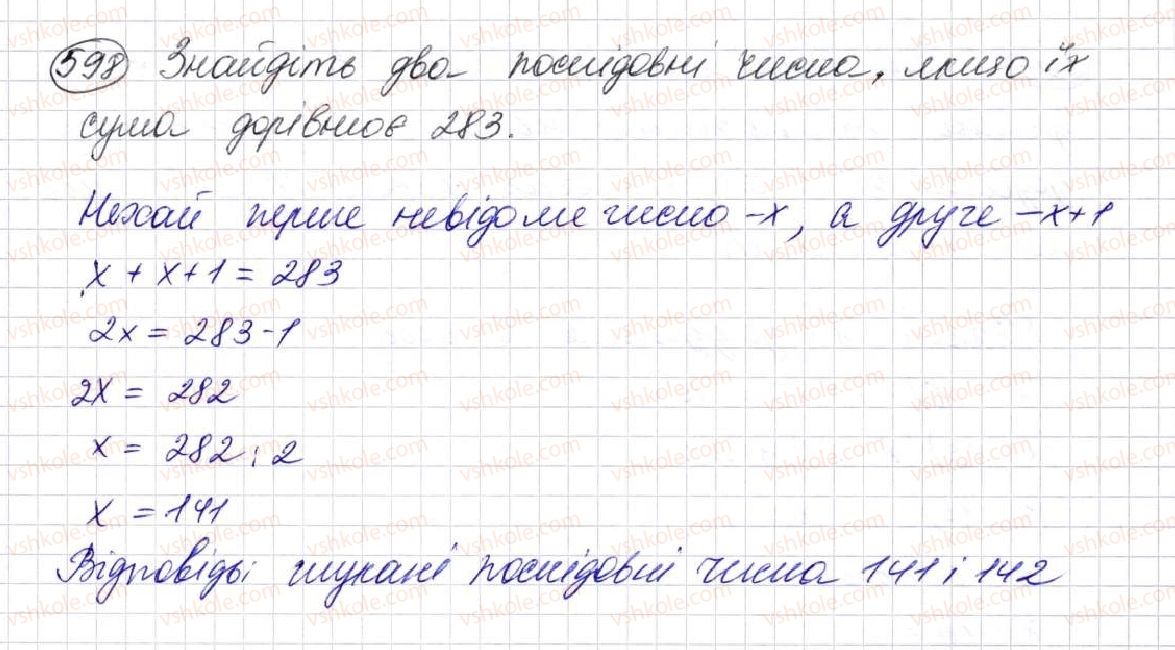 598 Знайдіть два послідовні числа, якщо їх
сума дорівнює 283.
Нехай перше невідоме число -х, а друге -х+1
х + х+1 = 283
2х = 283-1
2х = 282
х = 282 : 2
х = 141
Відповідь: шукані послідовні числа 141 і 142